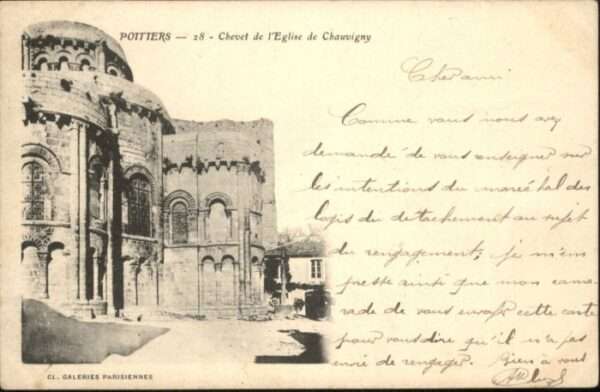 POITIERS — 28 - Chevet de l'Eglise de Chauvigny
Cher ami
Comme vous nous avez
demandé de vous enseigner sur
les intentions du maréchal des
logis du détachement au sujet
du rengagement, je m'em
presse ainsi que mon cama
rade de vous envoyer cette carte
pour vous dire qu'il n'a pas
envie de rengager. Bien à vous
CL. GALERIES PARISIENNES